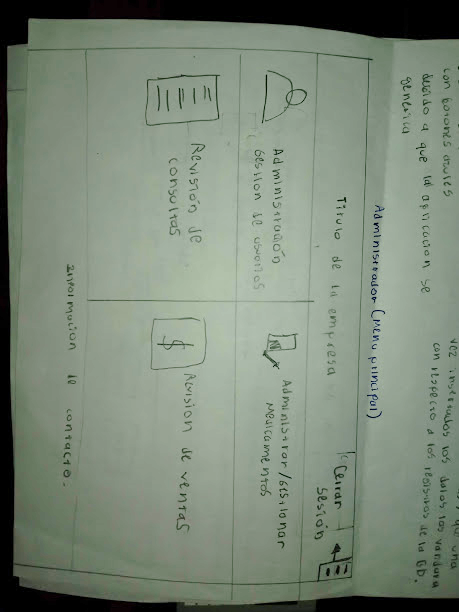 con botones azules
debido a que la aplicación se
generica
vez ingresados los datos los validara
con respecto a los registros de la BD.
Administrador (Menú principal)
Titulo de la empresa
Cerrar
sesión
Administración
Gestion de usuarios
Administrar/Gestionar
Medicamentos
Revisión de
consultas
$
Revision de ventas
Informacion de contacto.